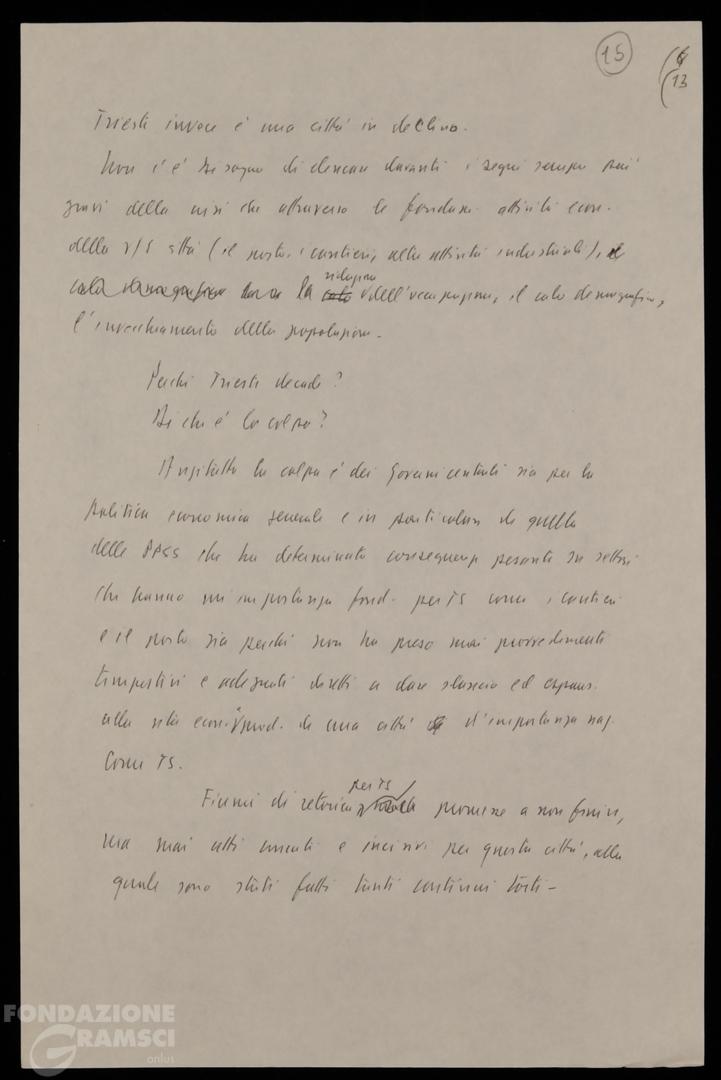 15
6
13
Trieste invece è una città in declino.
Non c'è bisogno di elencare davanti i segni sempre più
gravi della crisi che attraversa le fondam. attività econ.
della v/s città (il porto, i cantieri, altre attività industriali), il
calo demografico la riduzione dell'occupazione, il calo demografico,
l'invecchiamento della popolazione.
Perché Trieste decade?
Di chi è la colpa?
Anzitutto la colpa è dei Governi centrali sia per la
politica economica generale e in particolare da quella
delle PPSS che ha determinato conseguenze pesanti in settori
che hanno un'importanza fond. per TS come i cantieri
e il porto sia perché non ha preso mai provvedimenti
tempestivi e adeguati diretti a dare slancio ed espans.
alla vita econ. prod. di una città d'importanza naz.
come TS.
Fiumi di retorica per TS promesse a non finire,
ma mai atti concreti e incisivi per questa città, alla
quale sono stati fatti tanti continui torti -
FONDAZIONE
GRAMSCI
onlus